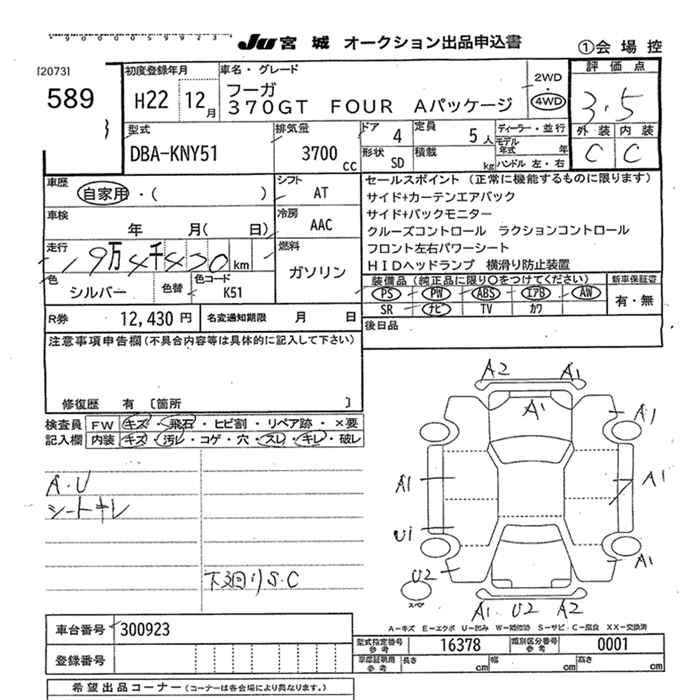 JU 宮城 オークション出品申込書 ①会場控
[2073]
589
初度登録年月 H22 12月
車名・グレード フーガ
370GT FOUR Aパッケージ
2WD
4WD
評価点 3.5
外装 内装
C C
型式 DBA-KNY51
排気量 3700 cc
ドア 4
定員 5人
形状 SD
積載 kg
ディーラー・並行
モデル年式 年
ハンドル 左・右
車歴 自家用・( )
シフト AT
車検 年 月( 日)
冷房 AAC
走行 19万4千420 km
燃料 ガソリン
色 シルバー 色替
色コード K51
R券 12,430円 名変通知期限 月 日
セールスポイント (正常に機能するものに限ります)
サイド+カーテンエアバック
サイド+バックモニター
クルーズコントロール ラクションコントロール
フロント左右パワーシート
HIDヘッドランプ 横滑り防止装置
装備品 (純正品に限り○をつけてください) 新車保証書
PS PW ABS エアB AW 有・無
SR ナビ TV カワ
後日品
注意事項申告欄(不具合内容等は具体的に記入して下さい)
修復歴 有 [箇所 ]
検査員 FW キズ・飛石・ヒビ割・リペア跡・×要
記入欄 内装 キズ・汚レ・コゲ・穴・スレ・キレ・破レ
A・U
シートキレ
下回りS.C
A2 A1
A1 A1
A1 A1
U1
U2 A1
スペア
A1 U2 A2
A−キズ E−エクボ U−凹み W−補修跡 S−サビ C−腐食 XX−交換済
車台番号 300923
登録番号
型式指定番号 参考 16378 類別区分番号 参考 0001
車庫証明用 参考 長さ cm 幅 cm 高さ cm
希望出品コーナー(コーナーは各会場により異なります。)